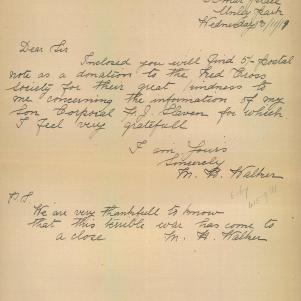 Unley Park
Wednesday 13/11/19
Dear Sir
Inclosed you will find 5/- Postal
note as a donation to the Red Cross
Society for their great kindness to
me concerning the information of my
Son Corporal F. J. Slaven for which
I feel very gratefull
I am, Yours
Sincerely
M. H. Walker
P.S.
We are very thankfull to know
that this terrible war has come to
a close M. H. Walker